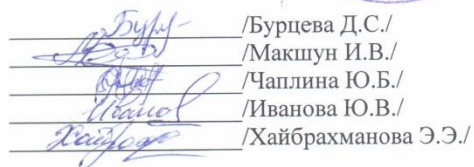 /Бурцева Д.С./
/Макшун И.В./
/Чаплина Ю.Б./
/Иванова Ю.В./
/Хайбрахманова Э.Э./